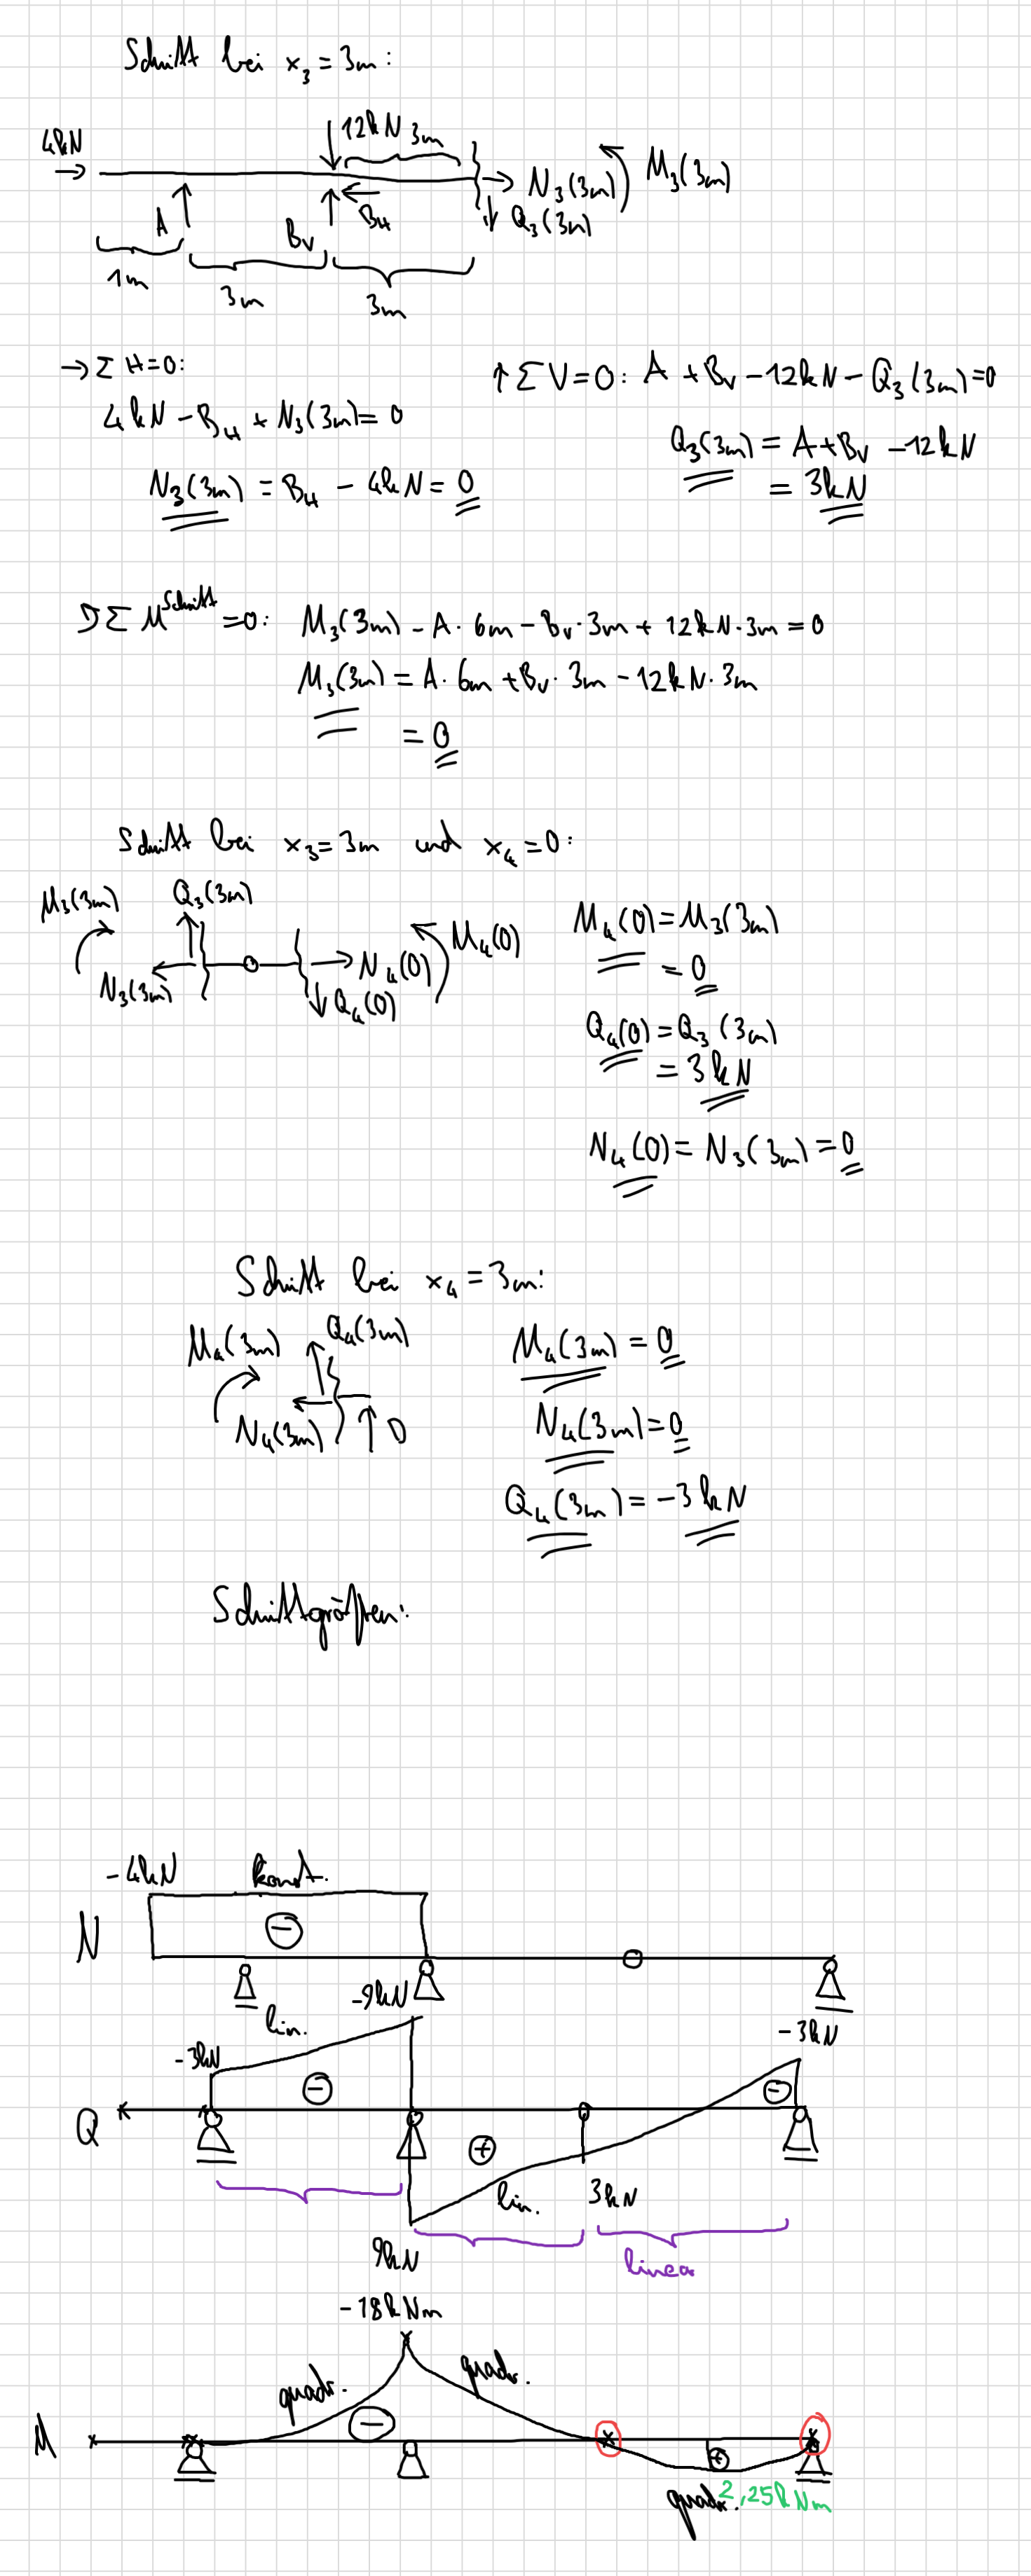 Schnitt bei x₃ = 3m:
4kN
12kN 3m
N₃(3m) M₃(3m)
A Bᵥ B_H Q₃(3m)
1m 3m 3m
→ Σ H=0:
4kN − B_H + N₃(3m) = 0
N₃(3m) = B_H − 4kN = 0
↑ Σ V=0: A + Bᵥ − 12kN − Q₃(3m) = 0
Q₃(3m) = A + Bᵥ − 12kN
= 3kN
Σ M^Schnitt = 0: M₃(3m) − A · 6m − Bᵥ · 3m + 12kN · 3m = 0
M₃(3m) = A · 6m + Bᵥ · 3m − 12kN · 3m
= 0
Schnitt bei x₃ = 3m und x₄ = 0:
M₃(3m) Q₃(3m)
N₃(3m) N₄(0) M₄(0)
Q₄(0)
M₄(0) = M₃(3m)
= 0
Q₄(0) = Q₃(3m)
= 3kN
N₄(0) = N₃(3m) = 0
Schnitt bei x₄ = 3m:
M₄(3m) Q₄(3m)
N₄(3m) D
M₄(3m) = 0
N₄(3m) = 0
Q₄(3m) = −3kN
Schnittgrößen:
−4kN konst.
N −
−9kN
lin.
−3kN −3kN
− −
Q
+
lin. 3kN
9kN linear
−18kNm
quadr. quadr.
M − +
quadr. 2,25kNm